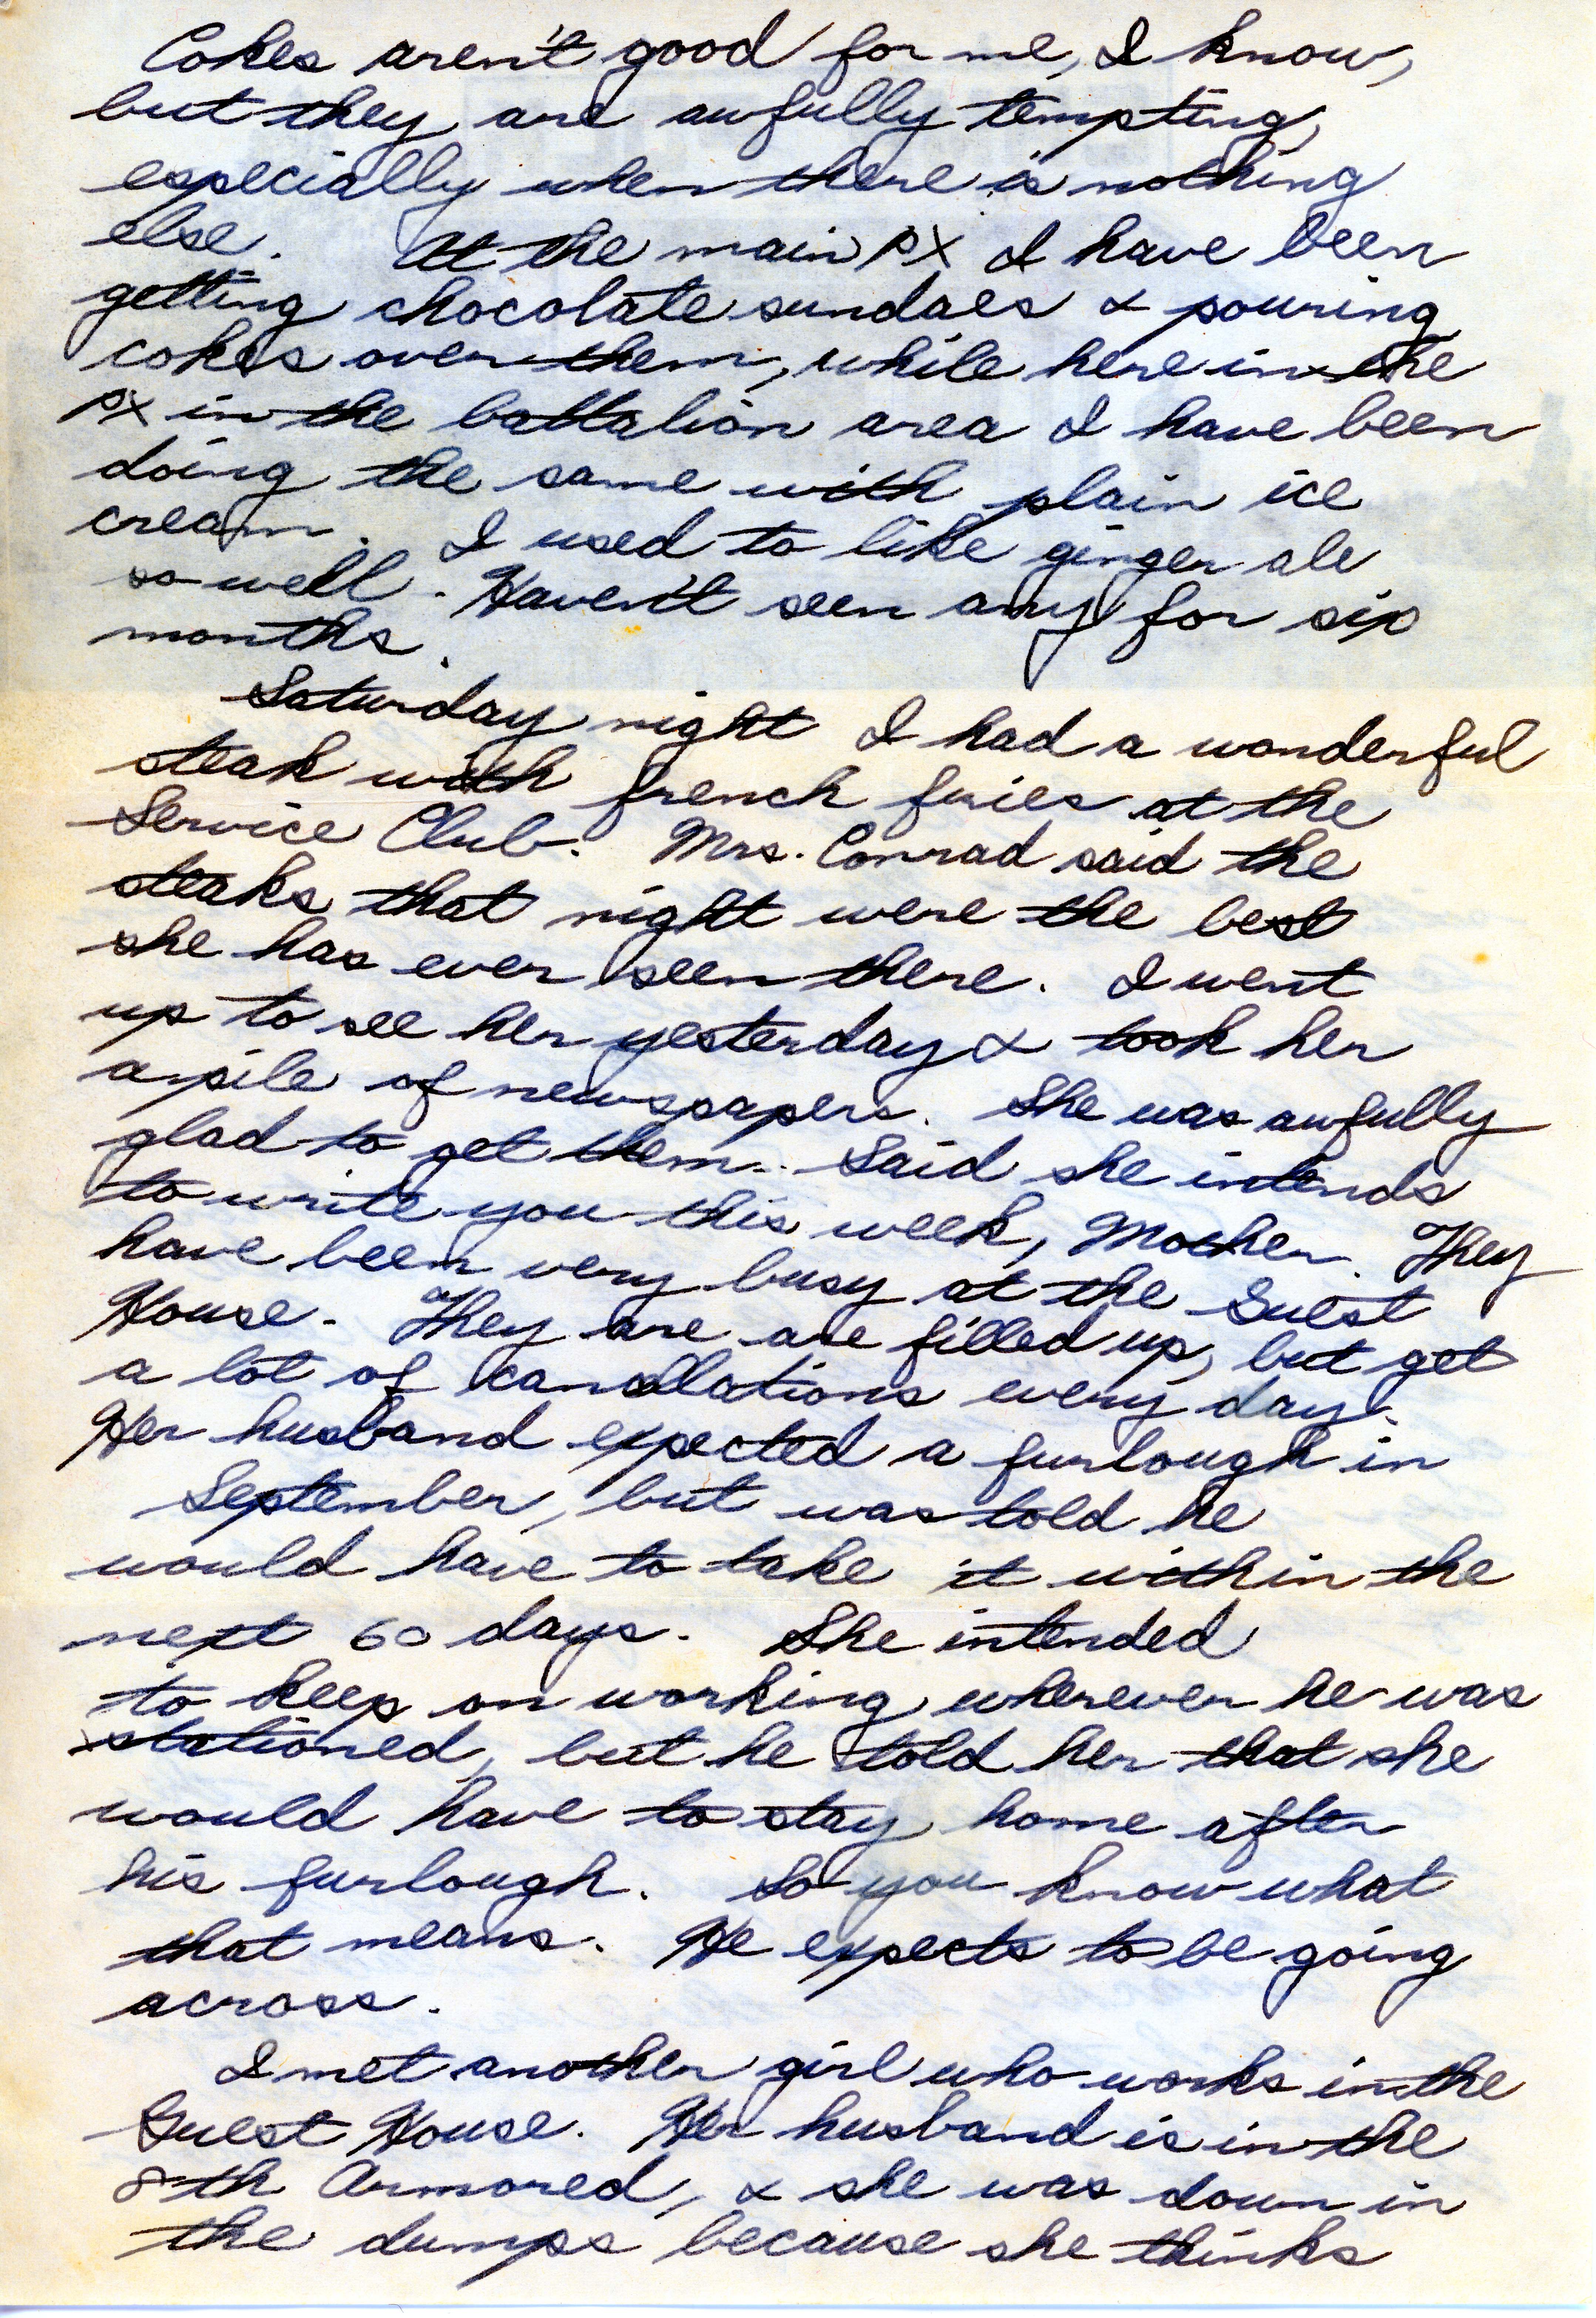 Cokes aren't good for me, I know,
but they are awfully tempting,
especially when there is nothing
else. At the main PX I have been
getting chocolate sundaes & pouring
cokes over them, while here in the
PX in the battalion area I have been
doing the same with plain ice
cream. I used to like ginger ale
so well. Haven't seen any for six
months.
Saturday night I had a wonderful
steak with french fries at the
Service Club. Mrs. Conrad said the
steaks that night were the best
she has ever seen there. I went
up to see her yesterday & took her
a pile of newspapers. She was awfully
glad to get them. Said she intends
to write you this week, Mother. They
have been very busy at the Guest
House. They are are filled up, but get
a lot of cancellations every day.
Her husband expected a furlough in
September, but was told he
would have to take it within the
next 60 days. She intended
to keep on working wherever he was
stationed, but he told her that she
would have to stay home after
his furlough. So you know what
that means. He expects to be going
across.
I met another girl who works in the
Guest House. Her husband is in the
8th Armored, & she was down in
the dumps because she thinks